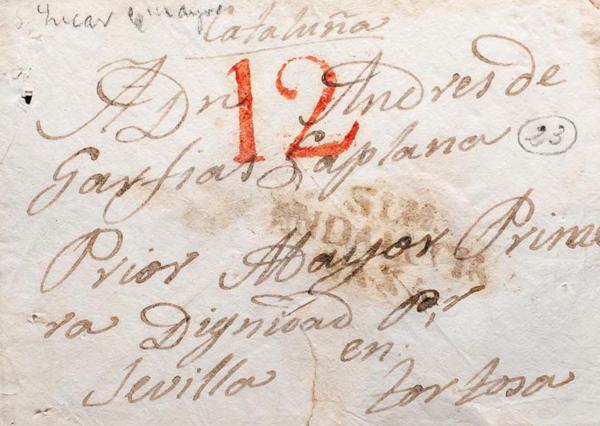 S. Lucar la mayor
Cataluña
12
A Dn Andres de
Garfias Laplana
23
Prior Mayor Prime
ra Dignidad Pr
en
Sevilla Tortosa